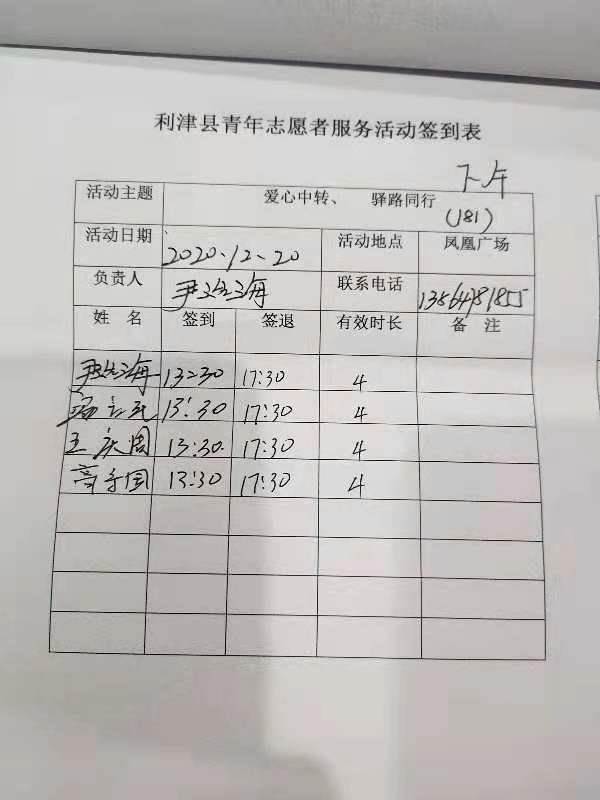 利津县青年志愿者服务活动签到表
下午
活动主题 爱心中转、 驿路同行 (181)
活动日期 2020.12.20 活动地点 凤凰广场
负责人 尹 海 联系电话
姓 名 签到 签退 有效时长 备 注
尹 海 13:30 17:30 4
13:30 17:30 4
王庆周 13:30 17:30 4
高 国 13:30 17:30 4